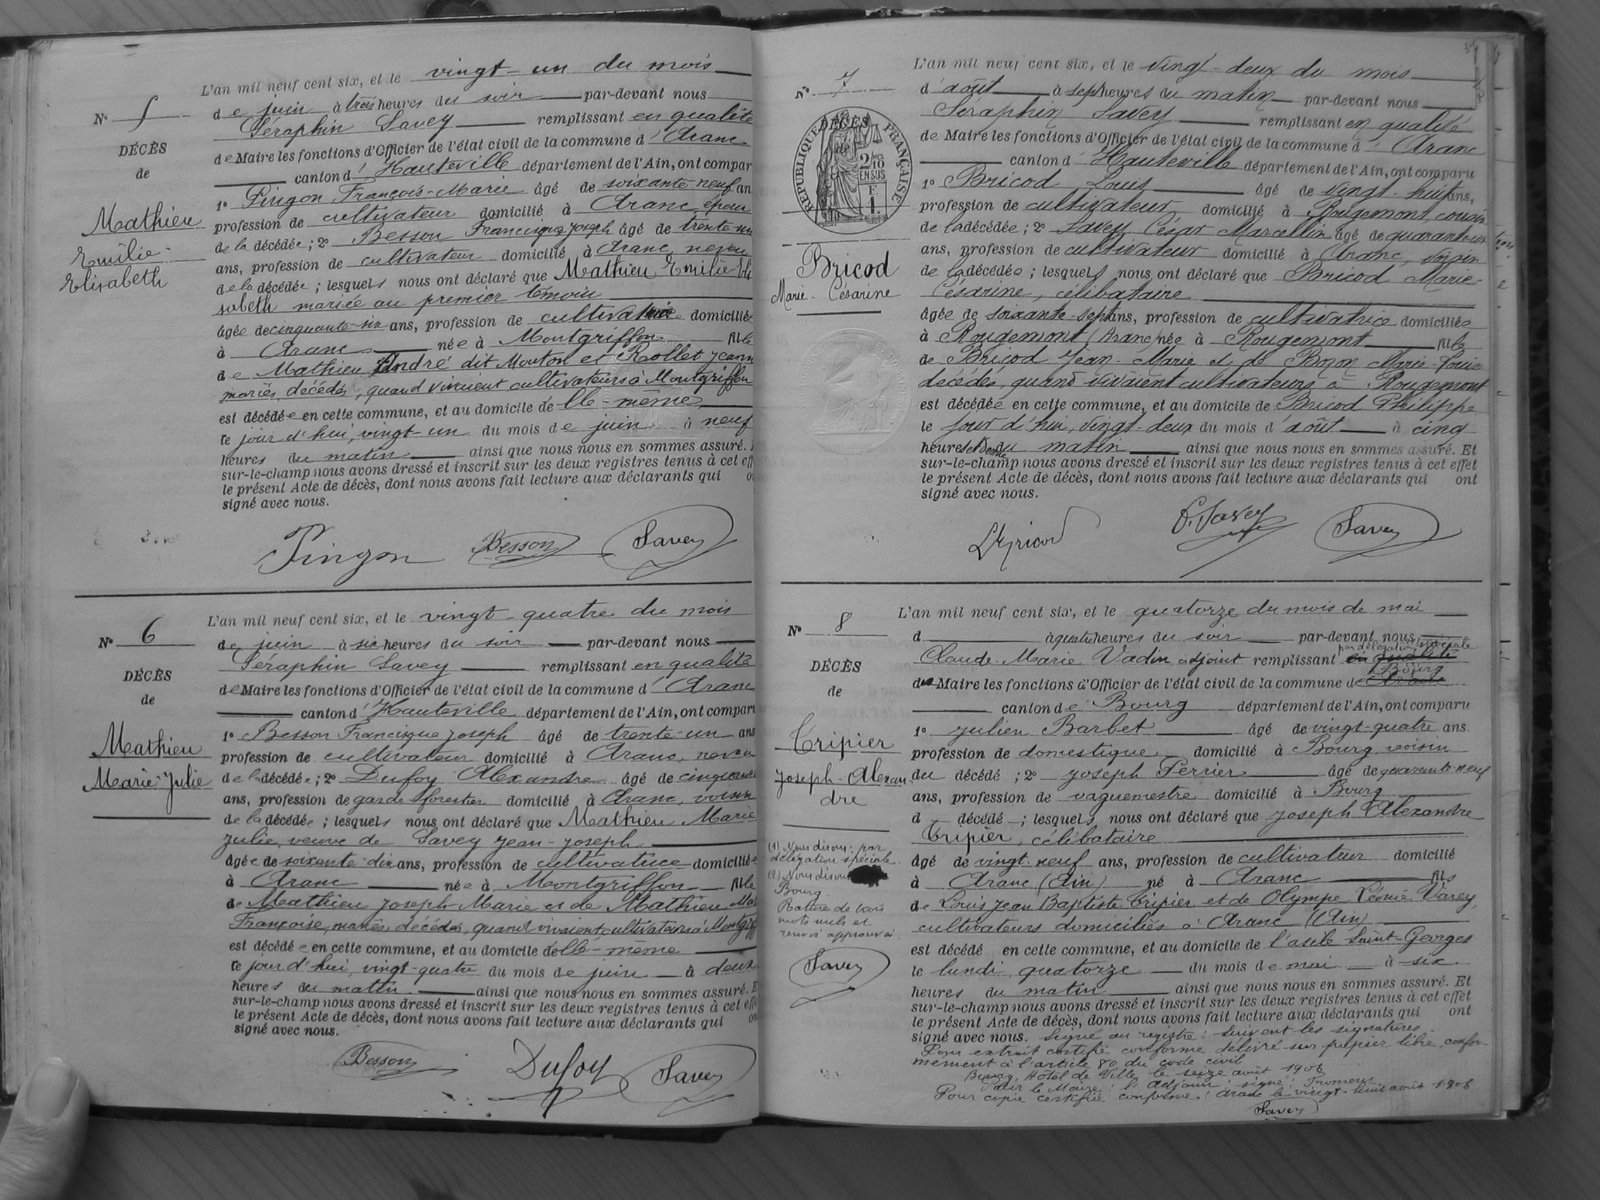 N° 5
DÉCÈS
de
Mathieu
Emilie
Elisabeth
L'an mil neuf cent six, et le vingt-un du mois
de juin à trois heures du soir par-devant nous
Séraphin Savey remplissant en qualité
de Maire les fonctions d'Officier de l'état civil de la commune d'Aranc
canton d'Hauteville département de l'Ain, ont compar
1° Pingon François-Marie âgé de soixante neuf an
profession de cultivateur domicilié à Aranc, époux
de la décédée; 2° Besson Francisque Joseph âgé de trente-un
ans, profession de cultivateur domicilié à Aranc, neveu
de la décédée; lesquels nous ont déclaré que Mathieu Emilie Eli
sabeth mariée au premier témoin
âgée de cinquante-six ans, profession de cultivatrice domiciliée
à Aranc née à Montgriffon fille
de Mathieu André dit Mouton et Reollet Jeann
mariés, décédés, quand vivaient cultivateurs à Montgriffon
est décédée en cette commune, et au domicile de lle-même
le jour d'hui, vingt-un du mois de juin à neuf
heures du matin ainsi que nous nous en sommes assuré.
sur-le-champ nous avons dressé et inscrit sur les deux registres tenus à cet eff
le présent Acte de décès, dont nous avons fait lecture aux déclarants qui o
signé avec nous.
Pingon Besson Savey
N° 6
DÉCÈS
de
Mathieu
Marie-Julie
L'an mil neuf cent six, et le vingt quatre du mois
de juin à six heures du soir par-devant nous
Séraphin Savey remplissant en qualité
de Maire les fonctions d'Officier de l'état civil de la commune d'Aranc
canton d'Hauteville département de l'Ain, ont comparu
1° Besson Francisque Joseph âgé de trente-un ans
profession de cultivateur domicilié à Aranc, neveu
de la décédée; 2° Dufoy Alexandre âgé de cinquante
ans, profession de garde forestier domicilié à Aranc, voisin
de la décédée; lesquels nous ont déclaré que Mathieu Marie
Julie, veuve de Savey Jean-Joseph
âgée de soixante dix ans, profession de cultivatrice domiciliée
à Aranc née à Montgriffon fille
de Mathieu Joseph Marie et de Mathieu Ma
Françoise, mariés, décédés, quand vivaient cultivateurs à Montgrif
est décédée en cette commune, et au domicile de lle-même
le jour d'hui, vingt-quatre du mois de juin à deux
heures du matin ainsi que nous nous en sommes assuré. E
sur-le-champ nous avons dressé et inscrit sur les deux registres tenus à cet eff
le présent Acte de décès, dont nous avons fait lecture aux déclarants qui on
signé avec nous.
Besson Dufoy Savey
N° 7
DÉCÈS
RÉPUBLIQUE FRANÇAISE
2/10 EN SUS
F
1.
Bricod
Marie-Césarine
L'an mil neuf cent six, et le vingt-deux du mois
d'août à sept heures du matin par-devant nous
Séraphin Savey remplissant en qualité
de Maire les fonctions d'Officier de l'état civil de la commune d'Aranc
canton d'Hauteville département de l'Ain, ont comparu
1° Bricod Louis âgé de vingt-huit ans,
profession de cultivateur domicilié à Rougemont, cousin
de la décédée; 2° Savey César Marcellin âgé de quarante-six
ans, profession de cultivateur domicilié à Aranc, voisin
de la décédée; lesquels nous ont déclaré que Bricod Marie
Césarine, célibataire
âgée de soixante-sept ans, profession de cultivatrice domiciliée
à Rougemont (Aranc) née à Rougemont fille
de Bricod Jean-Marie et de Bozon Marie-Louise
décédés, quand vivaient cultivateurs à Rougemont
est décédée en cette commune, et au domicile de Bricod Philippe
le jour d'hui, vingt-deux du mois d'août à cinq
heures et demie du matin ainsi que nous nous en sommes assuré. Et
sur-le-champ nous avons dressé et inscrit sur les deux registres tenus à cet effet
le présent Acte de décès, dont nous avons fait lecture aux déclarants qui ont
signé avec nous.
L Bricod C. Savey Savey
N° 8
DÉCÈS
de
Tripier
Joseph-Alexan
dre
(1) Nous disons: par
délégation spéciale
(2) Nous disons
Bourg
Rature de trois
mots nuls et
renvoi approuvés
Savey
L'an mil neuf cent six, et le quatorze du mois de mai
d à quatre heures du soir par-devant nous
par délégation spéciale
Claude Marie Vadin adjoint remplissant en qualité
Bourg
du Maire les fonctions d'Officier de l'état civil de la commune de Aranc
canton de Bourg département de l'Ain, ont comparu
1° Julien Barbet âgé de vingt-quatre ans
profession de domestique domicilié à Bourg voisin
du décédé; 2° Joseph Perrier âgé de quarante neuf
ans, profession de vaguemestre domicilié à Bourg
d décédé; lesquels nous ont déclaré que Joseph Alexandre
Tripier, célibataire
âgé de vingt-neuf ans, profession de cultivateur domicilié
à Aranc (Ain) né à Aranc fils
de Louis Jean Baptiste Tripier et de Olympe Léonie Varey
cultivateurs domiciliés à Aranc (Ain)
est décédé en cette commune, et au domicile de l'asile Saint-Georges
le lundi quatorze du mois de mai à six
heures du matin ainsi que nous nous en sommes assuré. Et
sur-le-champ nous avons dressé et inscrit sur les deux registres tenus à cet effet
le présent Acte de décès, dont nous avons fait lecture aux déclarants qui ont
signé avec nous. Signé au registre: suivent les signatures.
Pour extrait certifié conforme délivré sur papier libre, confor
mément à l'article 80 du code civil
Bourg, Hôtel de Ville, le seize août 1906
Pour le Maire: l'adjoint: signé:
Pour copie certifiée conforme: Aranc le vingt-huit août 1906
Savey